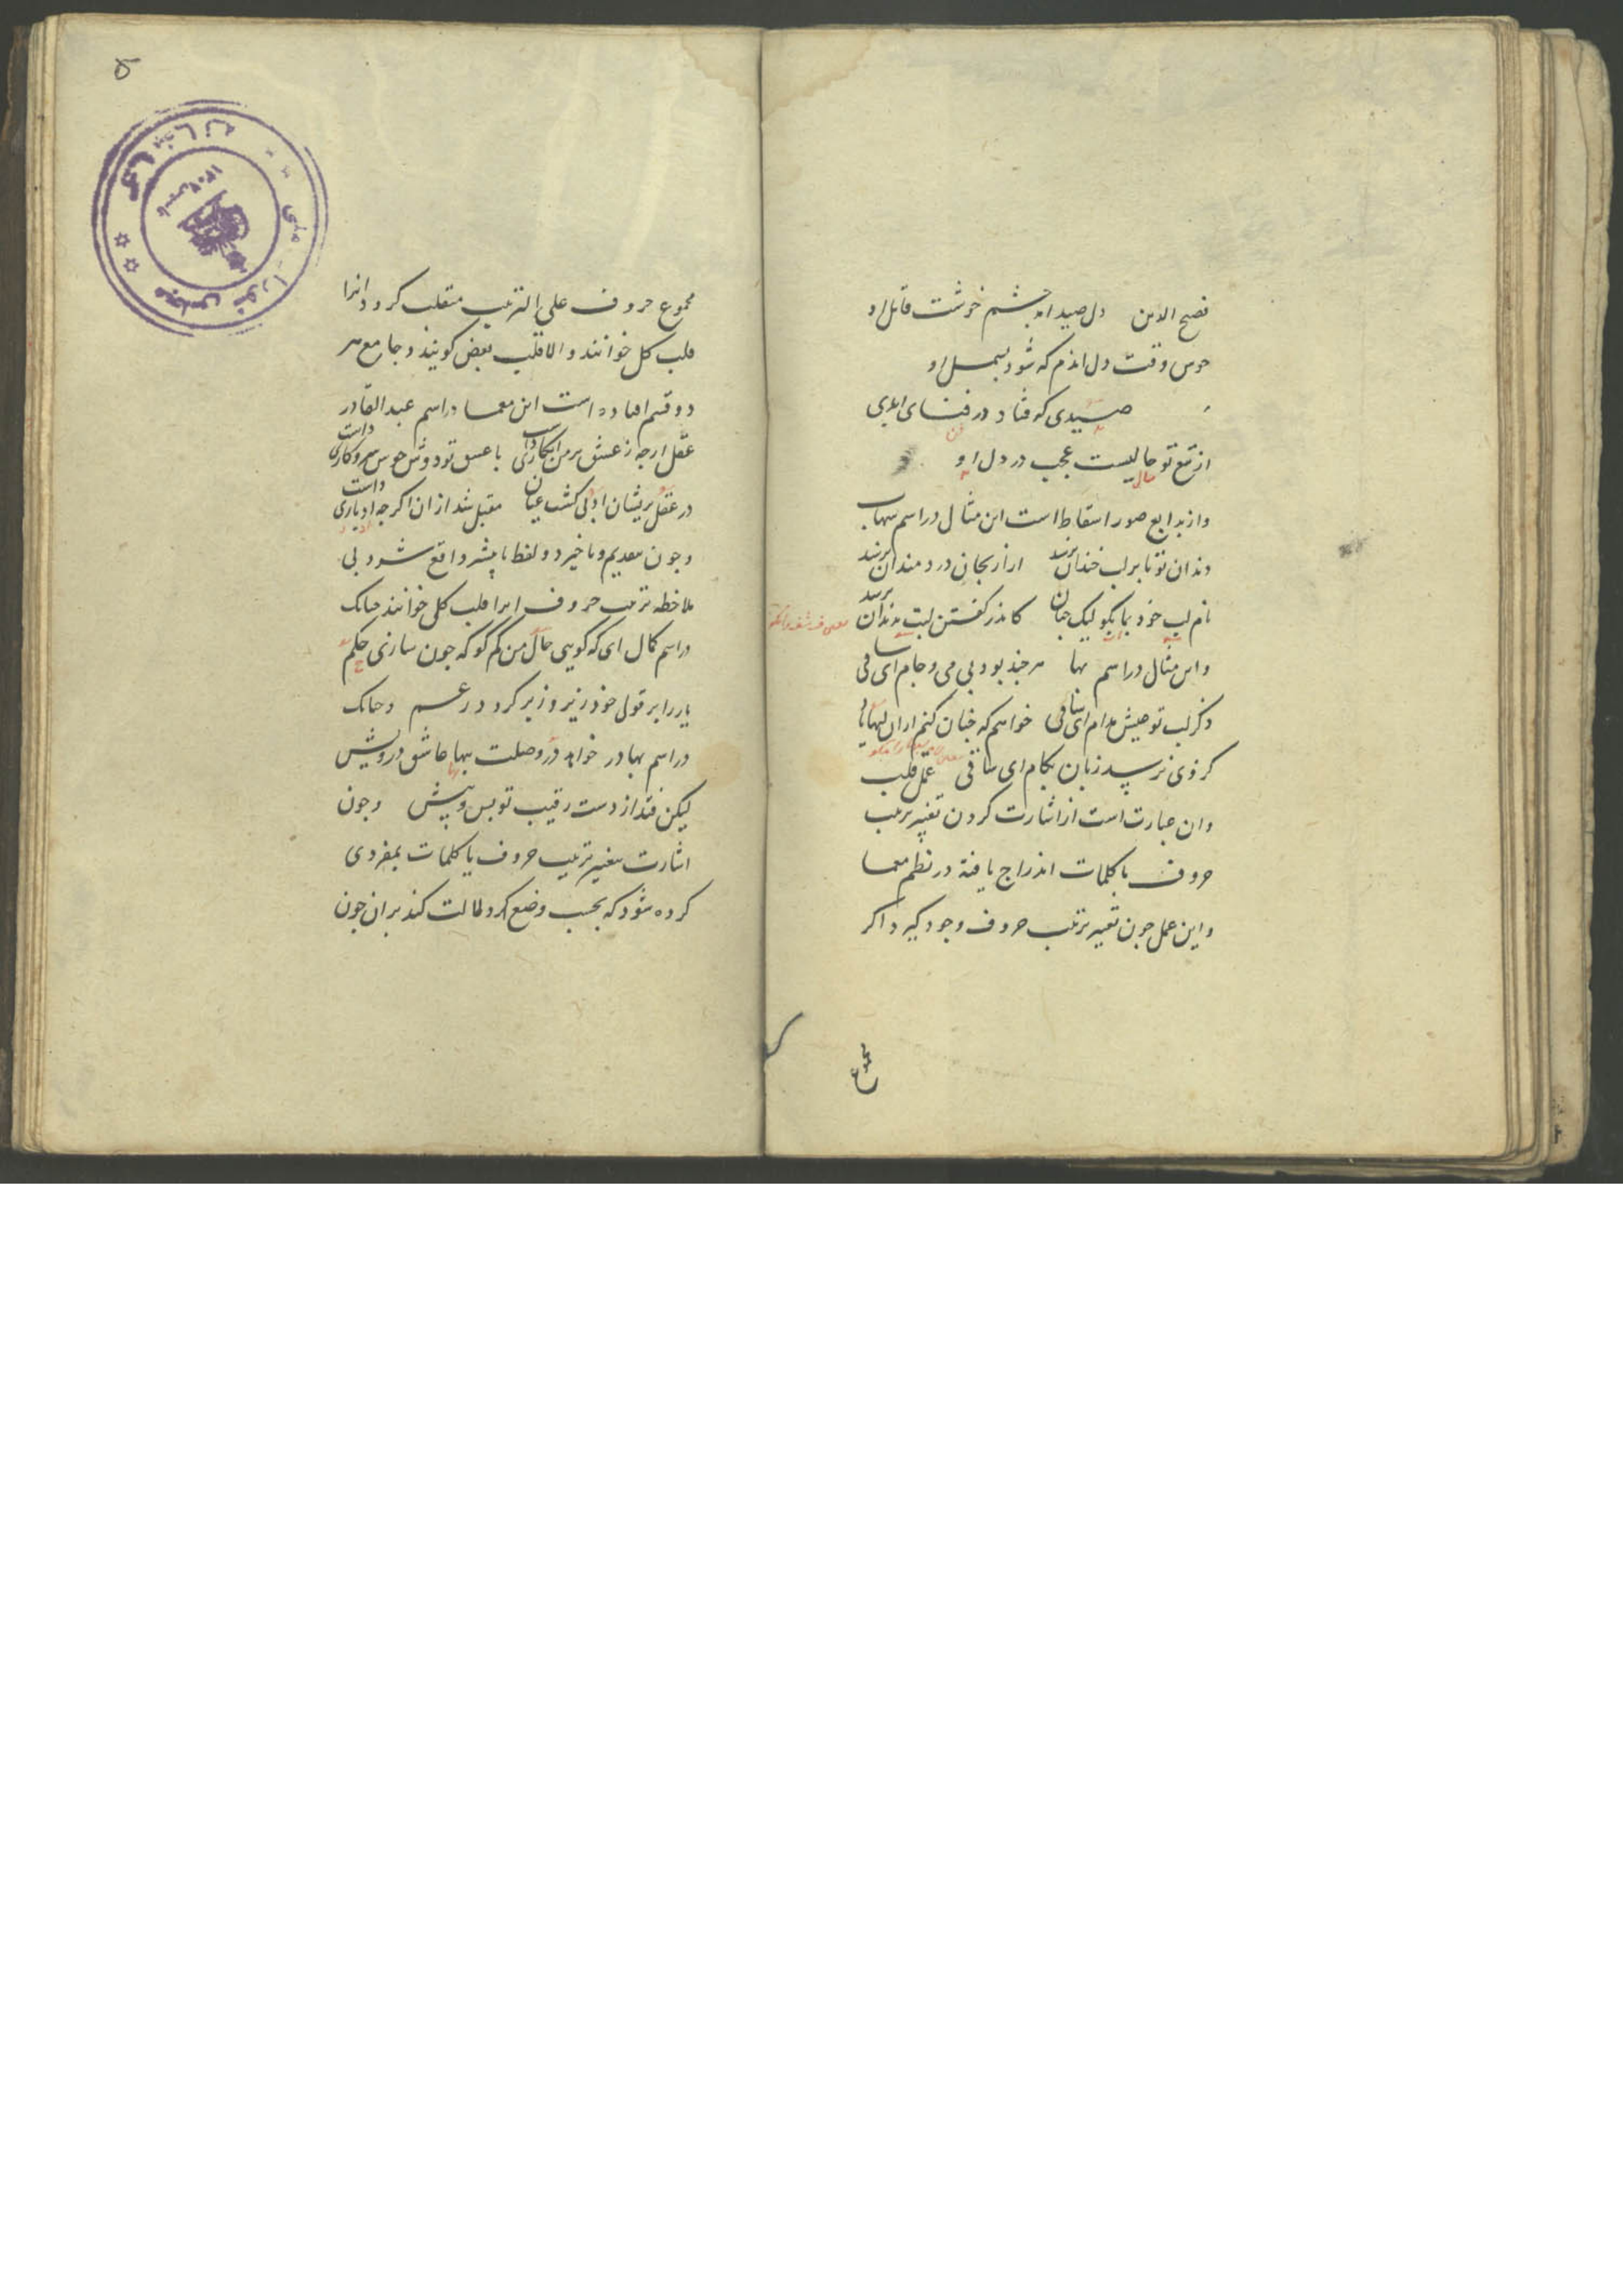 فصیح الدین دل صید آمد چشم خوشت قاتل او
خوش وقت دل اندم که شود بسمل او
صیدی که فتاد در فنای ابدی
از تیغ تو حالیست عجب در دل او
وازبدایع صور اسقاط است این مثال در اسم شهاب
دندان تو تا بر لب خندان نرسد ازار بجان دردمندان نرسد
نام لب خود بما بگو لیک چنان کاندر گفتن لبت بدندان نرسد
واین مثال در اسم بها هر چند بود بی می و جام ای ساقی
ذکر لب تو عیش مدام ای ساقی خواهم که چنان کنم ازان لبها یاد
کز وی نرسد زبان بکام ای ساقی عمل قلب
وان عبارت است از اشارت کردن تغییر ترتیب
حروف یا کلمات اندراج یافته در نظم معما
و این عمل چون تغییر ترتیب حروف وجود گیرد اگر
مجموع
۵
مجموع حروف علی الترتیب منقلب گردد انرا
قلب کل خوانند والا قلب بعض گویند و جامع هر
دو قسم افتاده است این معما در اسم عبد القادر
عقل ارچه ز عشق بر من انکاری داشت با عشق تو دوش خوش سر و کاری داشت
در عقل پریشان ادلی گشت عیان مقبل شد ازان اگرچه ادباری داشت
وچون تقدیم و تاخیر دو لفظ یا بیشتر واقع شود بی
ملاحظه ترتیب حروف انرا قلب کلی خوانند چنانک
در اسم کمال ای که گویی حال من کم گو که چون سازی حکم
یار را بر قول خود زیر و زبر گردد رغم وچنانک
در اسم بهادر خواهد در وصلت بها عاشق درویش
لیکن فتد از دست رقیب تو پس و پیش وچون
اشارت بتغییر ترتیب حروف یا کلمات بمفردی
کرده شود که بحسب وضع دلالت کند بران چون